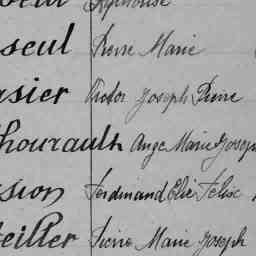 Alphonse
seul Pierre Marie
sier Victor Joseph Pierre
hourault Ange Marie Joseph
sion Ferdinand Elie Félix
eiller Pierre Marie Joseph